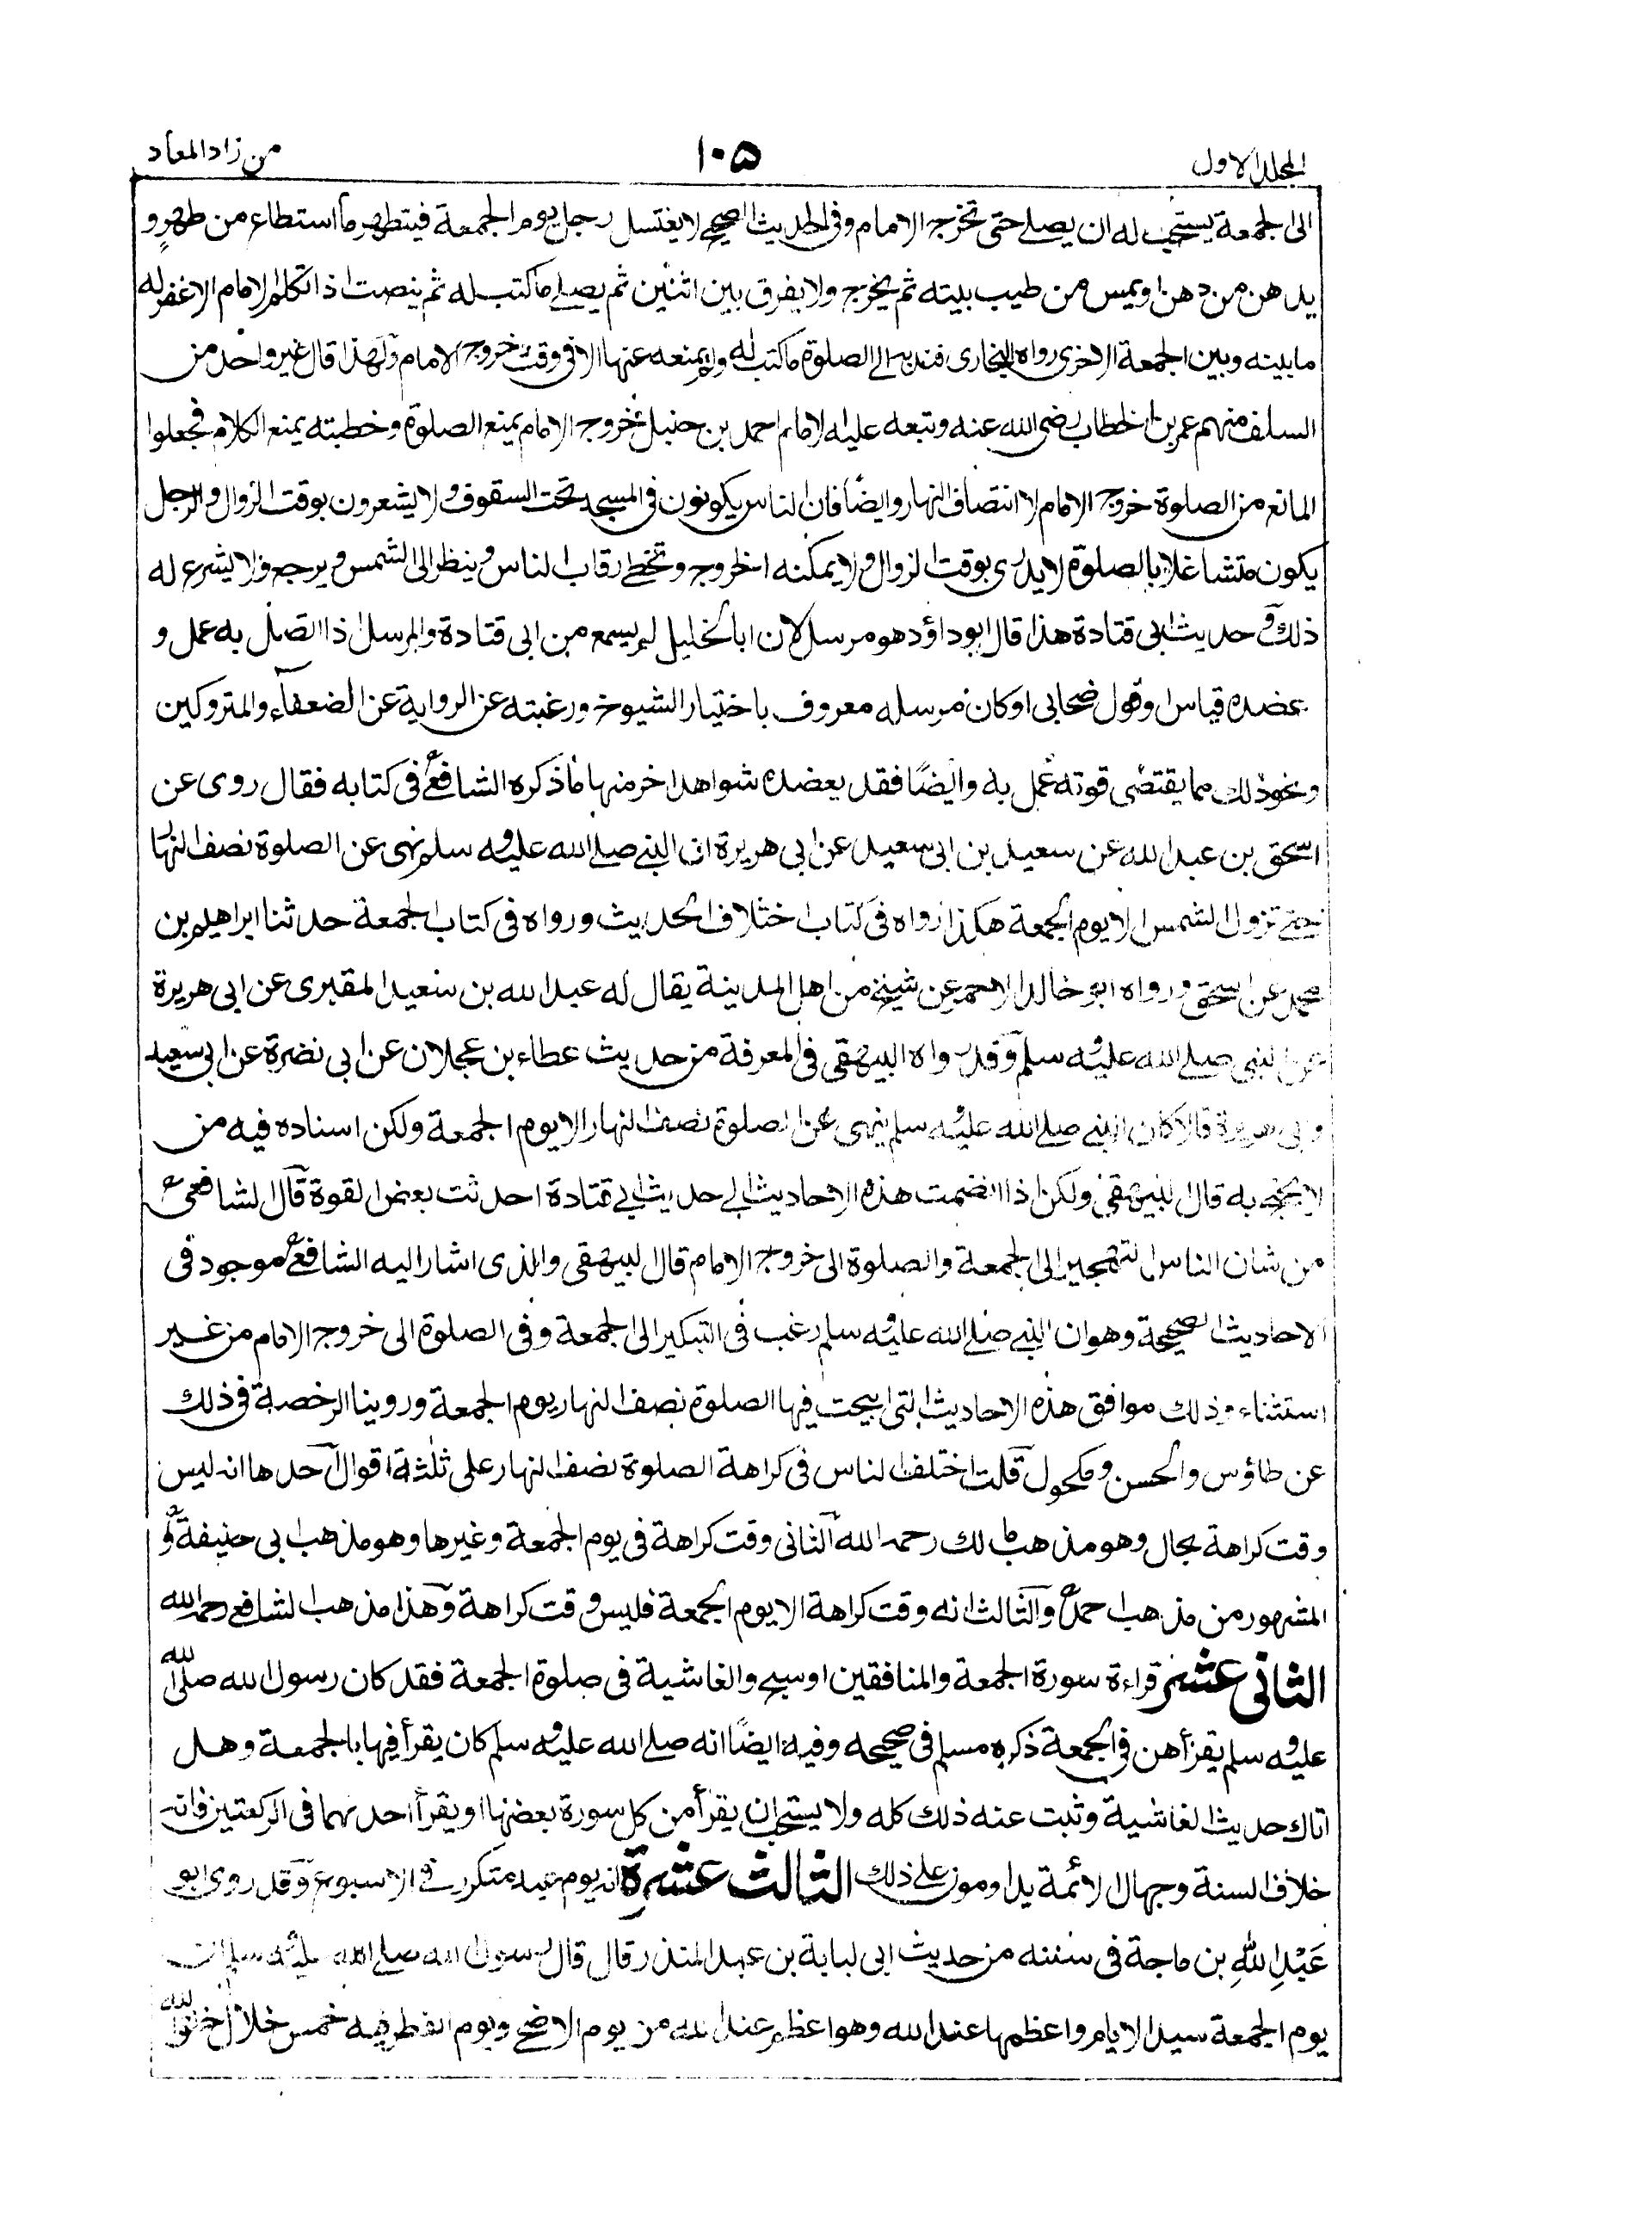 المجلد الاول
١٠٥
من زاد المعاد
الى الجمعة يستحب له ان يصلے حتى تخرج الامام وفى الحديث الصحيح لا يغتسل رجل يوم الجمعة فيتطهر ما استطاع من طهر و
يدهن من دهن او يمس من طيب بيته ثم يخرج ولا يفرق بين اثنين ثم يصلے ما كتب له ثم ينصت اذا تكلم الامام الا غفر له
ما بينه وبين الجمعة الاخرى رواه البخارى فندب الے الصلوة ما كتب له ولم يمنعه عنها الا فى وقت خروج الامام ولهذا قال غير واحد من
السلف منهم عمر بن الخطاب رضى الله عنه وتبعه عليه الامام احمد بن حنبل خروج الامام يمنع الصلوة وخطبته يمنع الكلام فجعلوا
المانع من الصلوة خروج الامام لا انتصاف النهار وايضًا فان الناس يكونون فى المسجد تحت السقوف ولا يشعرون بوقت الزوال والرجل
يكون متشاغلا بالصلوة لا يدرى بوقت الزوال ولا يمكنه الخروج وتخطے رقاب الناس وينظر الى الشمس ويرجع ولا يشرع له
ذلك وحديث ابى قتادة هذا قال ابو داؤد هو مرسل لان ابا الخليل لم يسمع من ابى قتادة والمرسل اذا اتصل به عمل و
عضده قياس او قول صحابى او كان مرسله معروف باختيار الشيوخ ورغبته عن الرواية عن الضعفاء والمتروكين
ونحو ذلك مما يقتضى قوته عمل به وايضًا فقد يعضده شواهد اخر منها ما ذكره الشافعى فى كتابه فقال روى عن
اسحق بن عبد الله عن سعيد بن ابى سعيد عن ابى هريرة ان النبے صلے الله عليه وسلم نهى عن الصلوة نصف النهار
حتے تزول الشمس الا يوم الجمعة هكذا رواه فى كتاب اختلاف الحديث ورواه فى كتاب الجمعة حدثنا ابراهيم بن
محمد عن اسحق ورواه ابو خالد الاحمر عن شيخ من اهل المدينة يقال له عبد الله بن سعيد المقبرى عن ابى هريرة
عن النبى صلے الله عليه وسلم وقد رواه البيهقى فى المعرفة من حديث عطاء بن عجلان عن ابى نضرة عن ابى سعيد
وابى هريرة قالا كان النبے صلے الله عليه وسلم ينهى عن الصلوة نصف النهار الا يوم الجمعة ولكن اسناده فيه من
لا يحتج به قال البيهقى ولكن اذا انضمت هذه الاحاديث الے حديث ابے قتادة احدثت بعض القوة قال الشافعى
من شان الناس التهجير الى الجمعة والصلوة الى خروج الامام قال البيهقى والذى اشار اليه الشافعى موجود فى
الاحاديث الصحيحة وهو ان النبے صلے الله عليه وسلم رغب فى التبكير الى الجمعة وفى الصلوة الى خروج الامام من غير
استثناء وذلك موافق هذه الاحاديث التى ابيحت فيها الصلوة نصف النهار يوم الجمعة وروينا الرخصة فى ذلك
عن طاؤس والحسن ومكحول قلت اختلف الناس فى كراهة الصلوة نصف النهار على ثلثة اقوال احدها انه ليس
وقت كراهة بحال وهو مذهب مالك رحمه الله الثانى وقت كراهة فى يوم الجمعة وغيرها وهو مذهب ابى حنيفة و
المشهور من مذهب احمد والثالث انه وقت كراهة الا يوم الجمعة فليس وقت كراهة وهذا مذهب الشافعى رحمه الله
الثانى عشر قراءة سورة الجمعة والمنافقين او سبح والغاشية فى صلوة الجمعة فقد كان رسول الله صلى الله
عليه وسلم يقرأهن فى الجمعة ذكره مسلم فى صحيحه وفيه ايضًا انه صلے الله عليه وسلم كان يقرأ فيها بالجمعة وهل
اتاك حديث الغاشية وثبت عنه ذلك كله ولا يستحب ان يقرأ من كل سورة بعضها او يقرأ احدهما فى الركعتين فانه
خلاف السنة وجهال الائمة يداومون على ذلك الثالث عشرة انه يوم عيد متكرر فے الاسبوع وقد روى ابو
عَبْدِ اللهِ بن ماجة فى سننه من حديث ابى لبابة بن عبد المنذر قال قال رسول الله صلے الله عليه وسلم ان
يوم الجمعة سيد الايام واعظمها عند الله وهو اعظم عند الله من يوم الاضحے ويوم الفطر فيه خمس خلال خلق الله